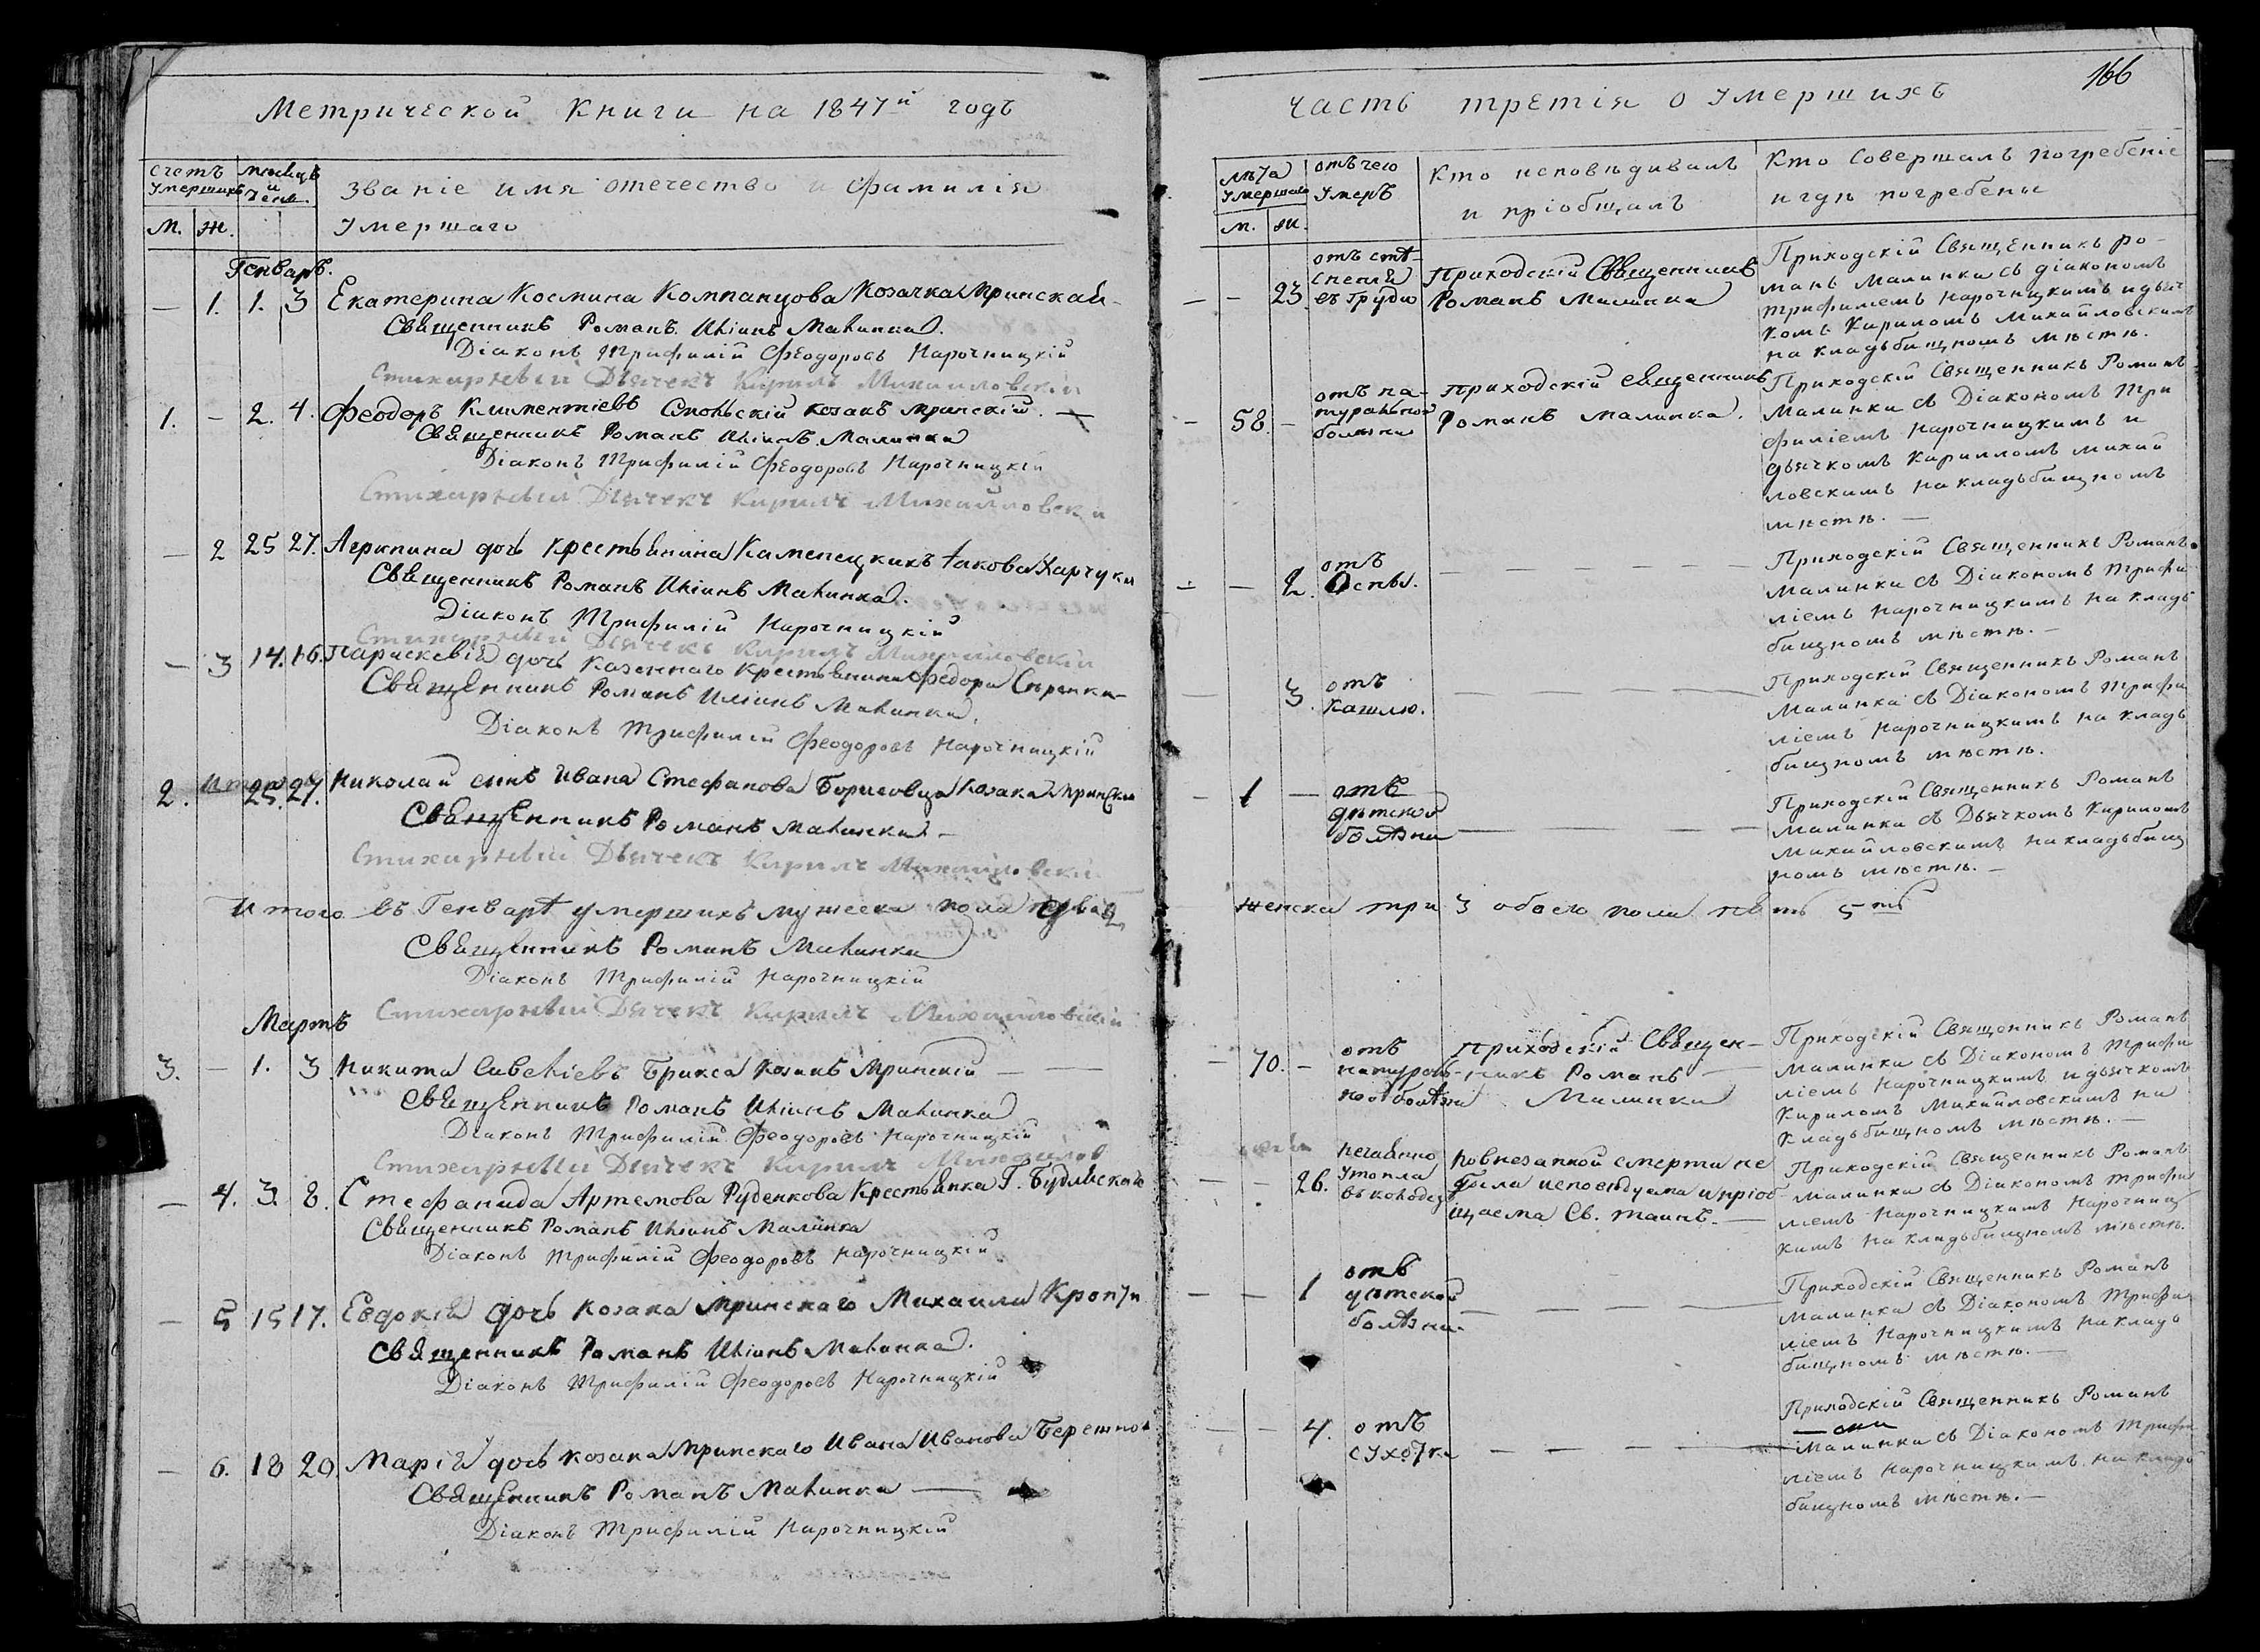 Метрической Книги на 1847й годъ
Счетъ Умершихъ
месяцъ и день.
Званіе имя отечество и фамилія
Умершаго
М. Ж.
Генварь.
— 1. 1. 3 Екатерина Космина Компанцова Козачка Мринская
Священникъ Романъ Иліинъ Малинка.
Діаконъ Трифилій Феодоровъ Нарочницкій
Стихарный Дьячекъ Кирилъ Михайловскій
1. — 2. 4. Феодоръ Климентіевъ Смольскій козакъ мринскій. —
Священникъ Романъ Иліинъ Малинка
Діаконъ Трифилій Феодоровъ Нарочницкій
Стихарный Дьячекъ Кирилъ Михайловскій
— 2 25 27. Агрипина дочь Крестьянина Каменецкихъ Іакова Харчука
Священникъ Романъ Иліинъ Малинка.
Діаконъ Трифилій Нарочницкій
Стихарный Дьячекъ Кирилъ Михайловскій
— 3 14. 16. Параскевія дочь казеннаго крестьянина Федора
Священникъ Романъ Иліинъ Малинка.
Діаконъ Трифилій Феодоровъ Нарочницкій
2. 25. 27. Николай сынъ Ивана Стефанова Борисовца Козака Мринска
Священникъ Романъ Малинка —
Стихарный Дьячекъ Кирилъ Михайловскій
Итого въ Генварѣ умершихъ мужеска пола два 2,
Священникъ Романъ Малинка
Діаконъ Трифилій Нарочницкій
Стихарный Дьячекъ Кирилъ Михайловскій
Мартъ
3. — 1. 3. Никита Савеліевъ Брикса козакъ Мринскій — —
Священникъ Романъ Иліинъ Малинка
Діаконъ Трифилій Феодоровъ Нарочницкій
Стихарный Дьячекъ Кирилъ Михайлов
— 4. 3. 8. Стефанида Артемова Руденкова Крестьянка Г.
Священникъ Романъ Иліинъ Малинка
Діаконъ Трифилій Феодоровъ Нарочницкій
— 5 15 17. Евдокія дочь козака Мринскаго Михаила
Священникъ Романъ Иліинъ Малинка.
Діаконъ Трифилій Феодоровъ Нарочницкій
— 6. 18 20. Марія дочь козака Мринскаго Ивана Иванова
Священникъ Романъ Малинка —
Діаконъ Трифилій Нарочницкій
166
часть третія о Умершихъ
лѣта Умершаго
отъ чего Умеръ
Кто исповѣдивалъ
и пріобщалъ
Кто Совершалъ погребеніе
и гдѣ погребены
м. ж.
— — 23.
отъ стѣ-
сненія
въ груди
Приходскій Священникъ
Романъ Малинка
Приходскій Священникъ Ро-
манъ Малинка съ діакономъ
Трифиліемъ Нарочницкимъ и дьяч
комъ Кириломъ Михайловскимъ
на кладьбищномъ мѣстѣ.
— 58. —
отъ на-
туральной
болѣзни
Приходскій священникъ
Романъ Малинка.
Приходскій Священникъ Романъ
Малинка съ Діакономъ Три
филіемъ Нарочницкимъ и
дьячкомъ Кириломъ михай
ловскимъ на кладьбищномъ
мѣстѣ. —
— — 2.
отъ
Оспы.
Приходскій Священникъ Романъ
Малинка съ Діакономъ Трифи
ліемъ Нарочницкимъ на кладь
бищномъ мѣстѣ. —
— 3.
отъ
кашлю.
Приходскій Священникъ Романъ
Малинка съ Діакономъ Трифи
ліемъ Нарочницкимъ на кладь
бищномъ мѣстѣ.
— 1 —
отъ
дѣтской
болѣзни
Приходскій Священникъ Романъ
Малинка съ Дьячкомъ Кириломъ
Михайловскимъ на кладьбищ
номъ мѣстѣ. —
женска три 3 обоего пола пять 5ть
— 70. —
отъ
натураль-
ной болѣзни
Приходскій Священ-
никъ Романъ
Малинка
Приходскій Священникъ Романъ
Малинка съ Діакономъ Трифи
ліемъ Нарочницкимъ и дьячкомъ
Кириломъ Михайловскимъ на
Кладьбищномъ мѣстѣ. —
— — 26.
нечаянно
утопла
въ колодез
По внезапной смерти не
была исповѣдуема и пріоб-
щаема Св. таинъ. —
Приходскій Священникъ Романъ
Малинка съ Діакономъ Трифи
ліемъ Нарочницкимъ Нарочниц
кимъ на кладьбищномъ мѣстѣ.
— — 1
отъ
дѣтской
болѣзни.
Приходскій Священникъ Романъ
Малинка съ Діакономъ Трифи
ліемъ Нарочницкимъ на кладь
бищномъ мѣстѣ. —
— — 4.
отъ
сухотки
Приходскій Священникъ Романъ
Малинка съ Діакономъ Трифи
ліемъ Нарочницкимъ на кладь
бищномъ мѣстѣ. —